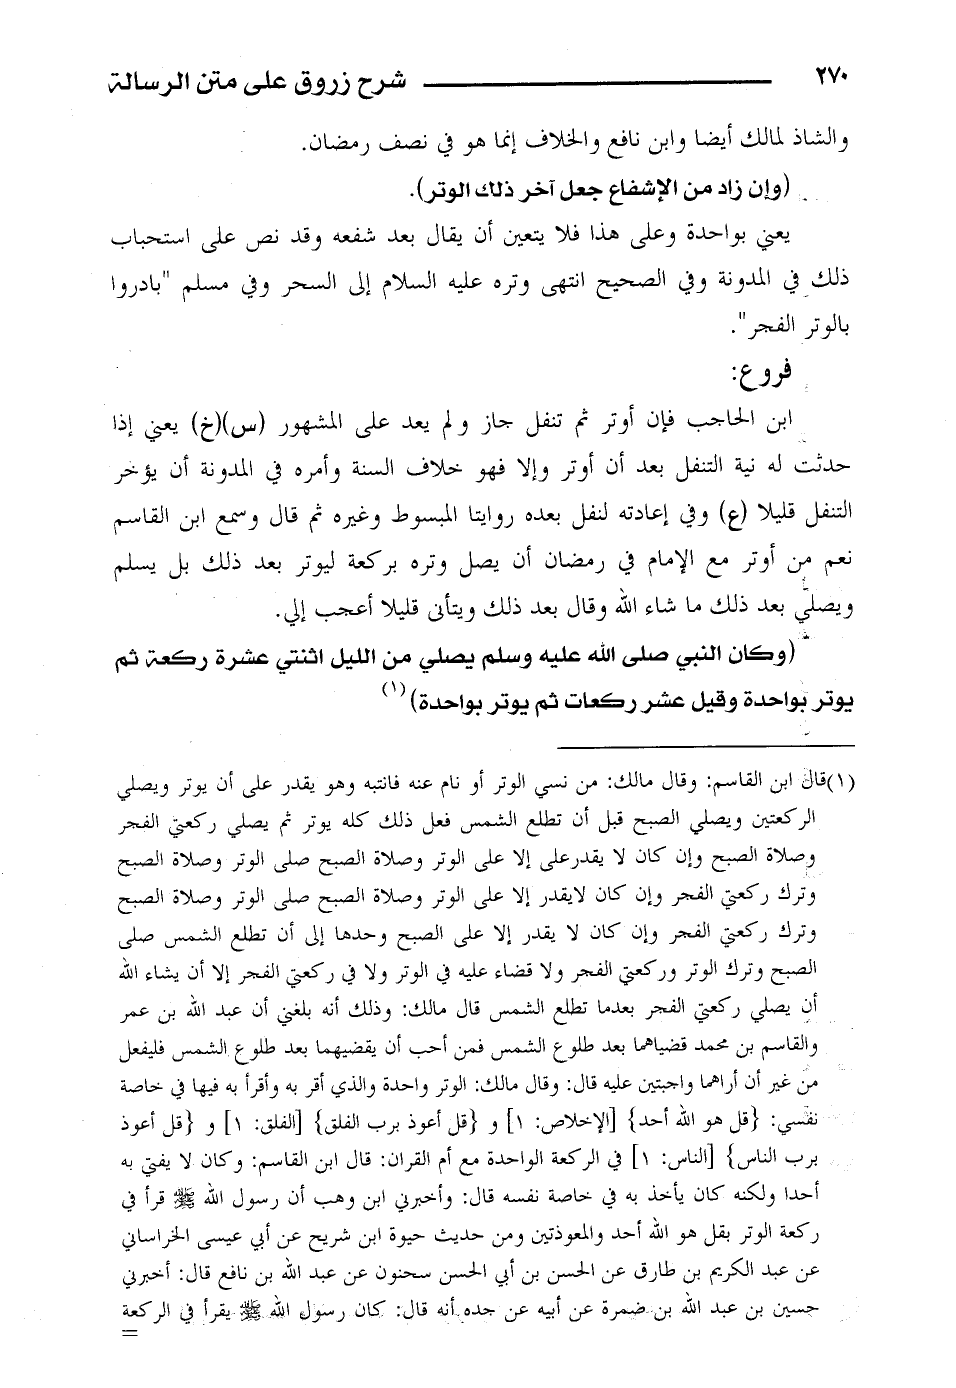 ٢٧٠ شرح زروق على متن الرسالة
والشاذ لمالك أيضا وابن نافع والخلاف إنما هو في نصف رمضان.
(وإن زاد من الإشفاع جعل آخر ذلك الوتر).
يعني بواحدة وعلى هذا فلا يتعين أن يقال بعد شفعه وقد نص على استحباب
ذلك في المدونة وفي الصحيح انتهى وتره عليه السلام إلى السحر وفي مسلم "بادروا
بالوتر الفجر".
فروع:
ابن الحاجب فإن أوتر ثم تنفل جاز ولم يعد على المشهور (س)(خ) يعني إذا
حدثت له نية التنفل بعد أن أوتر وإلا فهو خلاف السنة وأمره في المدونة أن يؤخر
التنفل قليلا (ع) وفي إعادته لنفل بعده روايتا المبسوط وغيره ثم قال وسمع ابن القاسم
نعم من أوتر مع الإمام في رمضان أن يصل وتره بركعة ليوتر بعد ذلك بل يسلم
ويصلي بعد ذلك ما شاء الله وقال بعد ذلك ويتأنى قليلا أعجب إلي.
(وكان النبي صلى الله عليه وسلم يصلي من الليل اثنتي عشرة ركعة ثم
يوتر بواحدة وقيل عشر ركعات ثم يوتر بواحدة)(١)
(١)قال ابن القاسم: وقال مالك: من نسي الوتر أو نام عنه فانتبه وهو يقدر على أن يوتر ويصلي
الركعتين ويصلي الصبح قبل أن تطلع الشمس فعل ذلك كله يوتر ثم يصلي ركعتي الفجر
وصلاة الصبح وإن كان لا يقدرعلى إلا على الوتر وصلاة الصبح صلى الوتر وصلاة الصبح
وترك ركعتي الفجر وإن كان لايقدر إلا على الوتر وصلاة الصبح صلى الوتر وصلاة الصبح
وترك ركعتي الفجر وإن كان لا يقدر إلا على الصبح وحدها إلى أن تطلع الشمس صلى
الصبح وترك الوتر وركعتي الفجر ولا قضاء عليه في الوتر ولا في ركعتي الفجر إلا أن يشاء الله
أن يصلي ركعتي الفجر بعدما تطلع الشمس قال مالك: وذلك أنه بلغني أن عبد الله بن عمر
والقاسم بن محمد قضياهما بعد طلوع الشمس فمن أحب أن يقضيهما بعد طلوع الشمس فليفعل
من غير أن أراهما واجبتين عليه قال: وقال مالك: الوتر واحدة والذي أقر به وأقرأ به فيها في خاصة
نفسي: {قل هو الله أحد} [الإخلاص: ١] و {قل أعوذ برب الفلق} [الفلق: ١] و {قل أعوذ
برب الناس} [الناس: ١] في الركعة الواحدة مع أم القران: قال ابن القاسم: وكان لا يفتي به
أحدا ولكنه كان يأخذ به في خاصة نفسه قال: وأخبرني ابن وهب أن رسول الله ﷺ قرأ في
ركعة الوتر بقل هو الله أحد والمعوذتين ومن حديث حيوة ابن شريح عن أبي عيسى الخراساني
عن عبد الكريم بن طارق عن الحسن بن أبي الحسن سحنون عن عبد الله بن نافع قال: أخبرني
حسين بن عبد الله بن ضمرة عن أبيه عن جده أنه قال: كان رسول الله ﷺ يقرأ في الركعة
=